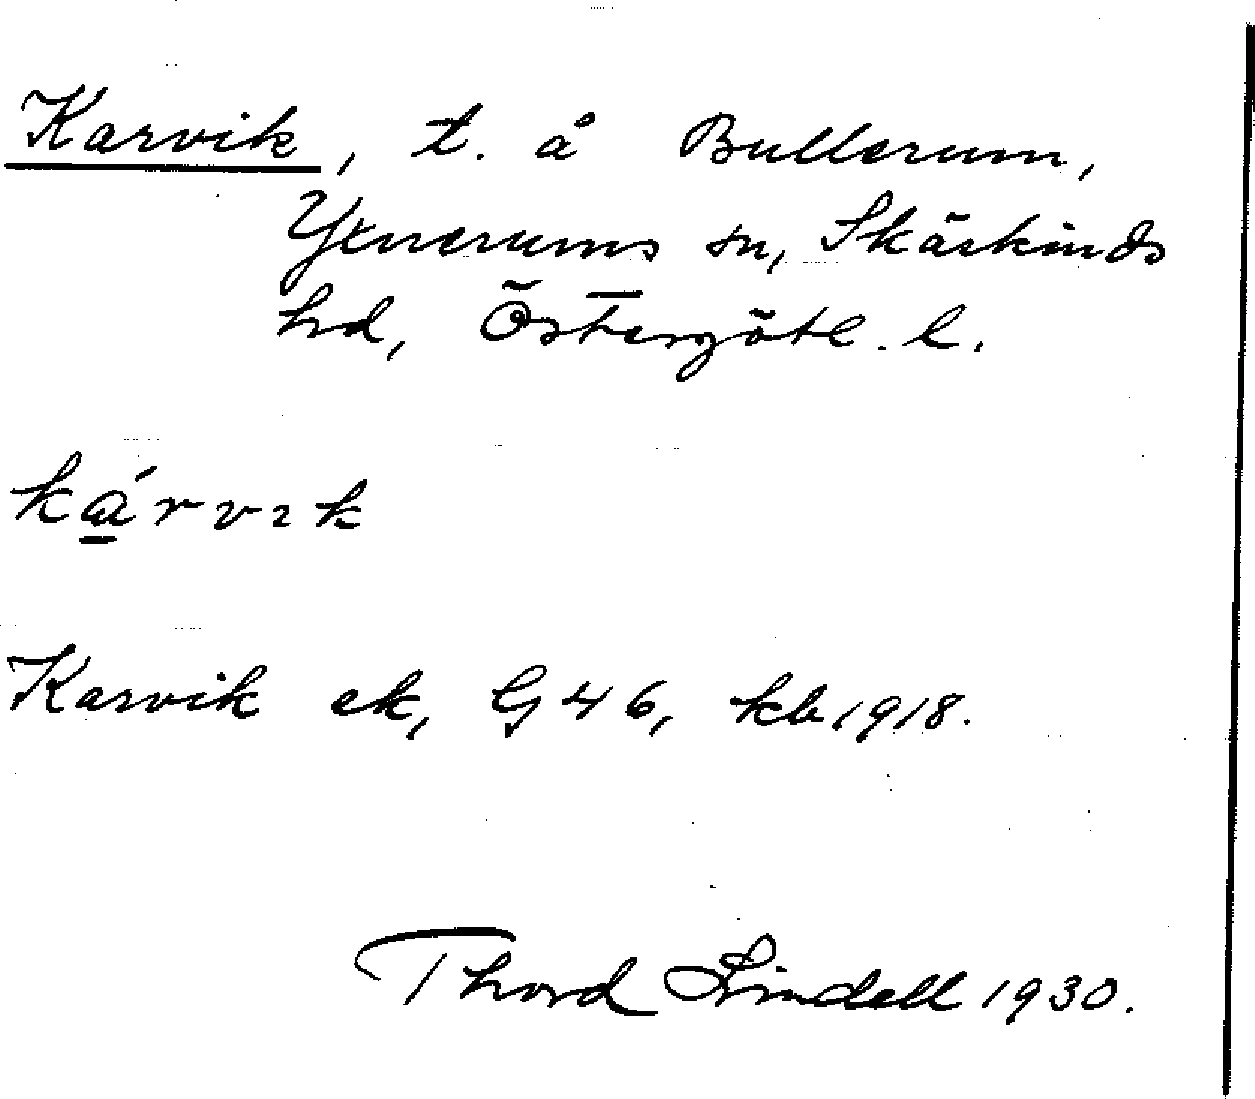 Karvik, t. å Bullerum,
Yxnerums sn, Skärkinds
hd, Östergötl. l.
kárvık
Karvik ek, G46, kb 1918.
Thord Lindell 1930.